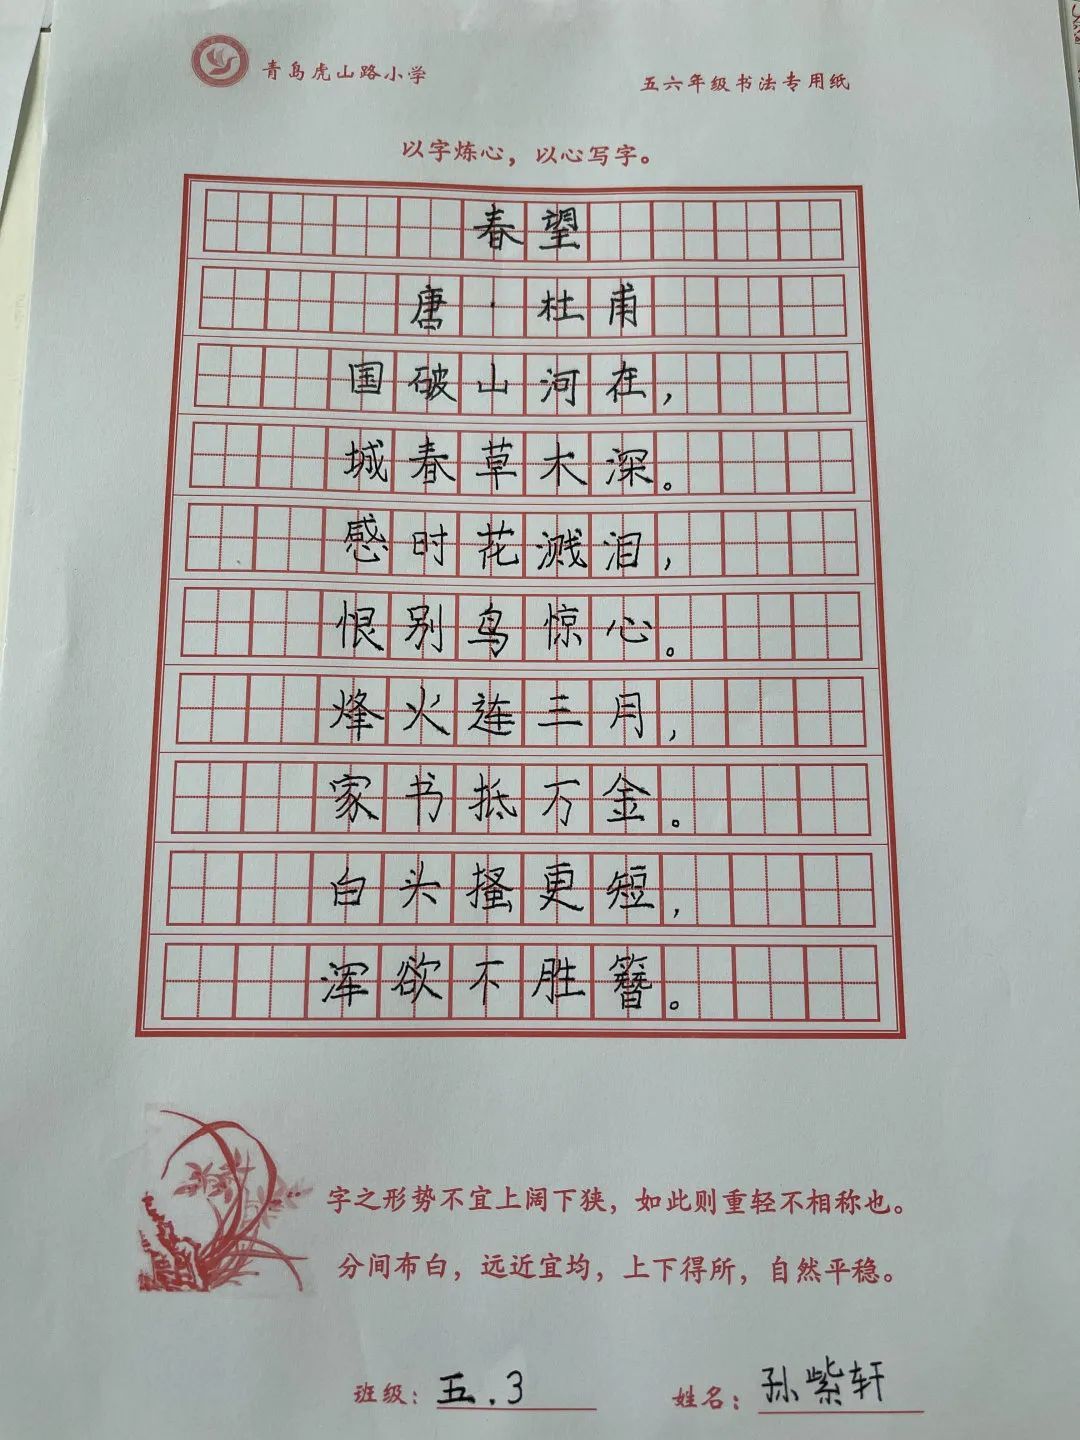 青岛虎山路小学
五六年级书法专用纸
以字炼心，以心写字。
春望
唐·杜甫
国破山河在，
城春草木深。
感时花溅泪，
恨别鸟惊心。
烽火连三月，
家书抵万金。
白头搔更短，
浑欲不胜簪。
字之形势不宜上阔下狭，如此则重轻不相称也。
分间布白，远近宜均，上下得所，自然平稳。
班级：五.3
姓名：孙紫轩